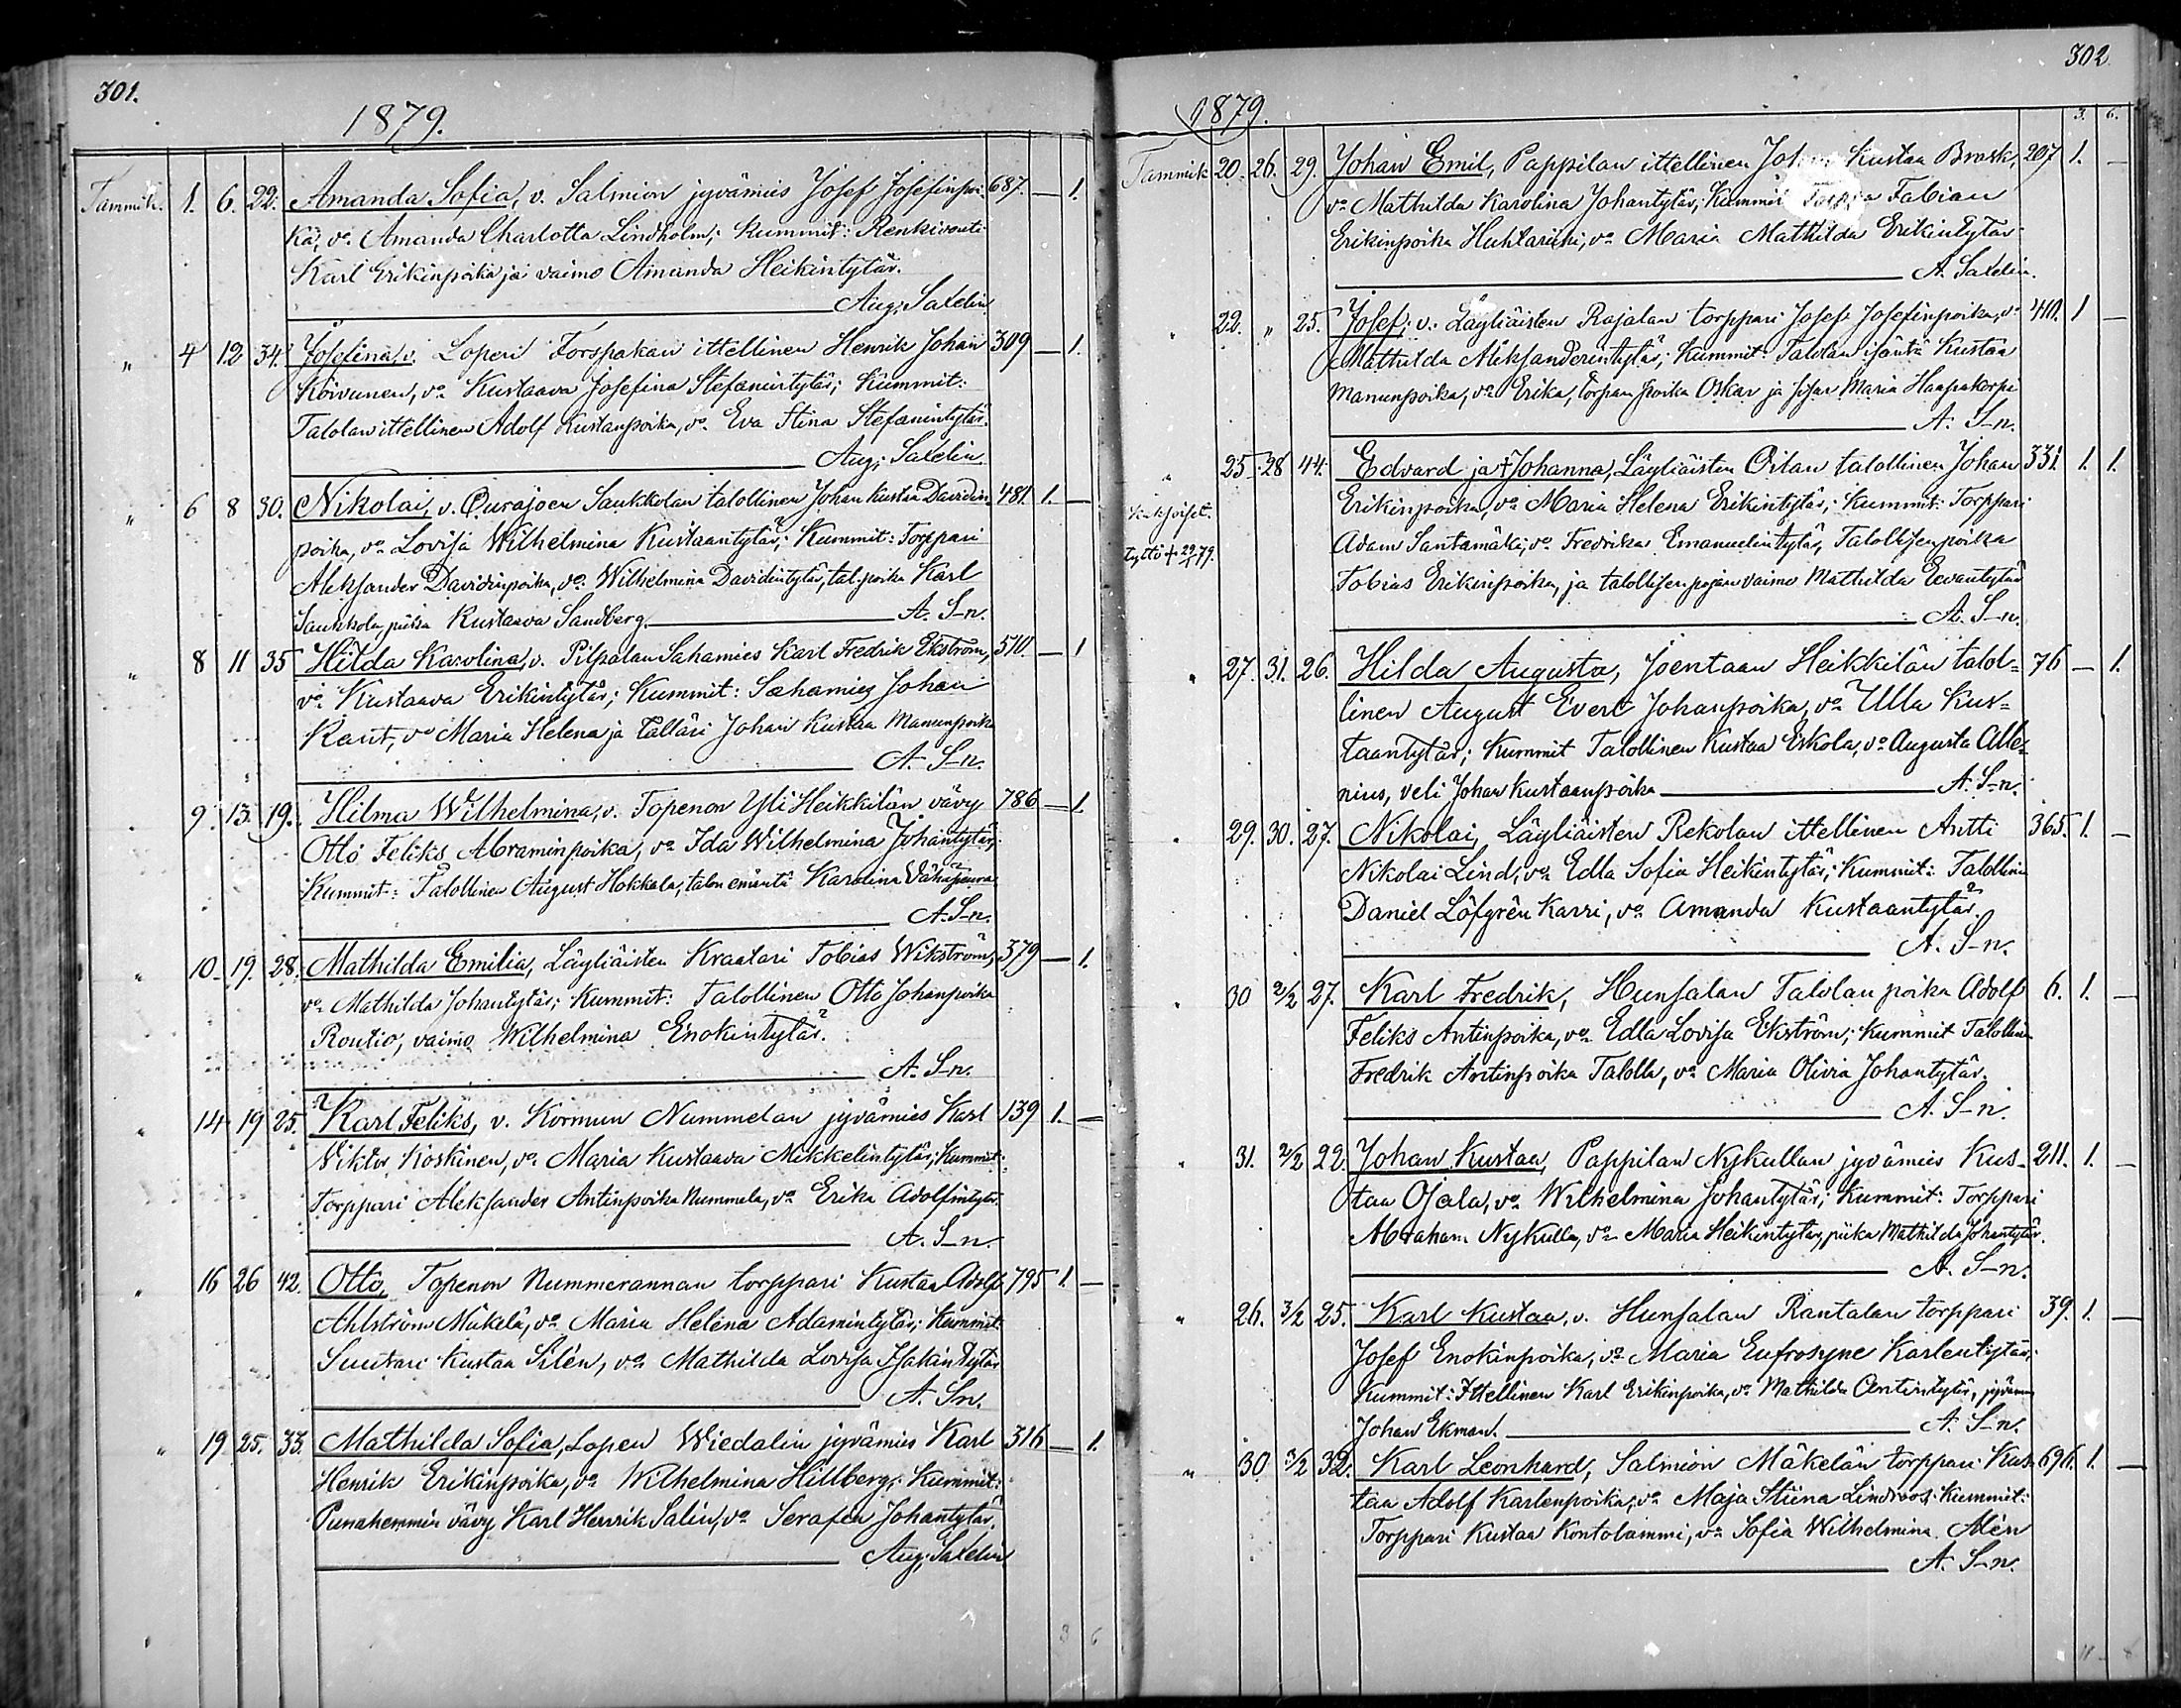 301.
1879.
Tammik. 1. 6. 22. Amanda Sofia, v. Salmion jyvämies Josef Josefinpoi- 687. — 1.
ka, vo. Amanda Charlotta Lindholm; Kummit: Renkivouti
Karl Erikinpoika ja vaimo Amanda Heikintytär.
Aug. Saxelin
" 4 12 34. Josefina, v. Loperi Forspakan ittellinen Henrik Johan 309 — 1.
Koivunen, vo. Kustaava Josefina Stefanintytär; Kummit:
Talolan ittellinen Adolf Kustanpoika, vo. Eva Stina Stefanintytär.
Aug. Saxelin.
" 6 8 30. Nikolai, v. Ourajoen Saukkolan talollinen Johan Kustaa Davidin- 481. 1. —
poika, vo. Lovisa Wilhelmina Kustaantytär; Kummit: Torppari
Aleksander Davidinpoika, vo. Wilhelmina Davidintytär, tal. poika Karl
Saukkola, piika Kustaava Sandberg. A. S-n.
" 8 11 35 Hilda Karolina, v. Pilpalan Sahamies Karl Fredrik Ekström, 510. — 1
vo. Kustaava Erikintytär; Kummit: Sahamies Johan
Rant, vo. Maria Helena ja Talläri Johan Kustaa Manunpoika
A. S-n.
" 9. 13. 19. Hilma Wilhelmina, v. Topenon Yli Heikkilän vävy 786 — 1.
Otto Feliks Abraminpoika, vo. Ida Wilhelmina Johantytär;
Kummit: Talollinen August Hokkala, talon emäntä Karolina Vähäpeura
A. S-n.
" 10. 19. 28. Mathilda Emilia, Läyliäisten Kraatari Tobias Wikström, 379 — 1.
vo. Mathilda Johantytär; Kummit: Talollinen Otto Johanpoika
Routio, vaimo Wilhelmina Enokintytär.
A. S-n.
" 14. 19 25. Karl Feliks, v. Kormun Nummelan jyvämies Karl 139 1. —
Viktor Koskinen, vo. Maria Kustaava Mikkelintytär; Kummit:
Torppari Aleksander Antinpoika Nummela, vo. Erika Adolfintytär.
A. S-n.
" 16 26 42. Otto, Topenon Nummerannan torppari Kustaa Adolf 795 1. —
Ahlström Mäkelä, vo. Maria Helena Adamintytär; Kummit:
Suutari Kustaa Silén, vo. Mathilda Lovisa Isakintytär
A. Sn.
" 19. 25. 33. Mathilda Sofia, Lopen Wiedalin jyvämies Karl 316 — 1.
Henrik Erikinpoika, vo. Wilhelmina Hillberg; Kummit:
Punahemmin vävy Karl Henrik Salin, vo. Serafia Johantytär.
Aug. Saxelin
3 6
302
1879.
3. 6.
Tammik 20. 26. 29. Johan Emil, Pappilan ittellinen Johan Kustaa Brask, 207 1. —
vo. Mathilda Karolina Johantytär; Kummit Fabian
Erikinpoika, vo. Maria Mathilda Erikintytär
A. Saxelin.
" 22. " 25. Josef; v. Läyliäisten Rajalan torppari Josef Josefinpoika, vo. 410. 1 —
Mathilda Aleksanderintytär; Kummit: Talolan isäntä Kustaa
Manunpoika, vo. Erika, torpan poika Oskar ja sisar Maria Haapakorpi
A. S-n.
" 25. 28 44. Edvard ja † Johanna, Läyliäisten Oilan talollinen Johan 331. 1. 1.
Kaksoiset.
Erikinpoika, vo. Maria Helena Erikintytär; Kummit: Torppari
tyttö + 29/1 79.
Adam Santamäki, vo. Fredrika Emanuelintytär, Talollisen poika
Tobias Erikinpoika, ja talollisen pojan vaimo Mathilda Eevantytär
A. S-n.
" 27. 31. 26. Hilda Augusta, Joentaan Heikkilän talol= 76 — 1.
linen August Evert Johanpoika, vo. Ulla Kus=
taantytär; Kummit Talollinen Kustaa Eskola, vo. Augusta Alle=
nius, veli Johan Kustaanpoika A. S-n.
" 29. 30. 27. Nikolai, Läyliäisten Rekolan ittellinen Antti 365. 1. —
Nikolai Lind, vo. Edla Sofia Heikintytär; Kummit: Talollinen
Daniel Löfgrén Karri, vo. Amanda Kustaantytär.
A. S-n.
" 30 2/2 27. Karl Fredrik, Hunsalan Talolan poika Adolf 6. 1. —
Feliks Antinpoika, vo. Edla Lovisa Ekström; Kummit Talollinen
Fredrik Antinpoika Talolla, vo. Maria Olivia Johantytär.
A. S-n.
" 31. 2/2 22. Johan Kustaa, Pappilan Nykullan jyvämies Kus- 211. 1. —
taa Ojala, vo. Wilhelmina Johantytär; Kummit: Torppari
Abraham Nykulla, vo. Maria Heikintytär, piika Mathilda Johantytär.
A. S-n.
" 26. 3/2 25. Karl Kustaa, v. Hunsalan Rantalan torppari 39. 1. —
Josef Enokinpoika, vo. Maria Eufrosyne Karlentytär;
Kummit: Ittellinen Karl Erikinpoika, vo. Mathilda Antintytär, jyvämies
Johan Ekman. A. S-n.
" 30 3/2 32. Karl Leonhard, Salmion Mäkelän torppari Kus- 696. 1. —
taa Adolf Karlenpoika, vo. Maja Stiina Lindroos; Kummit:
Torppari Kustaa Kontolammi, vo. Sofia Wilhelmina Alén
A. S-n.